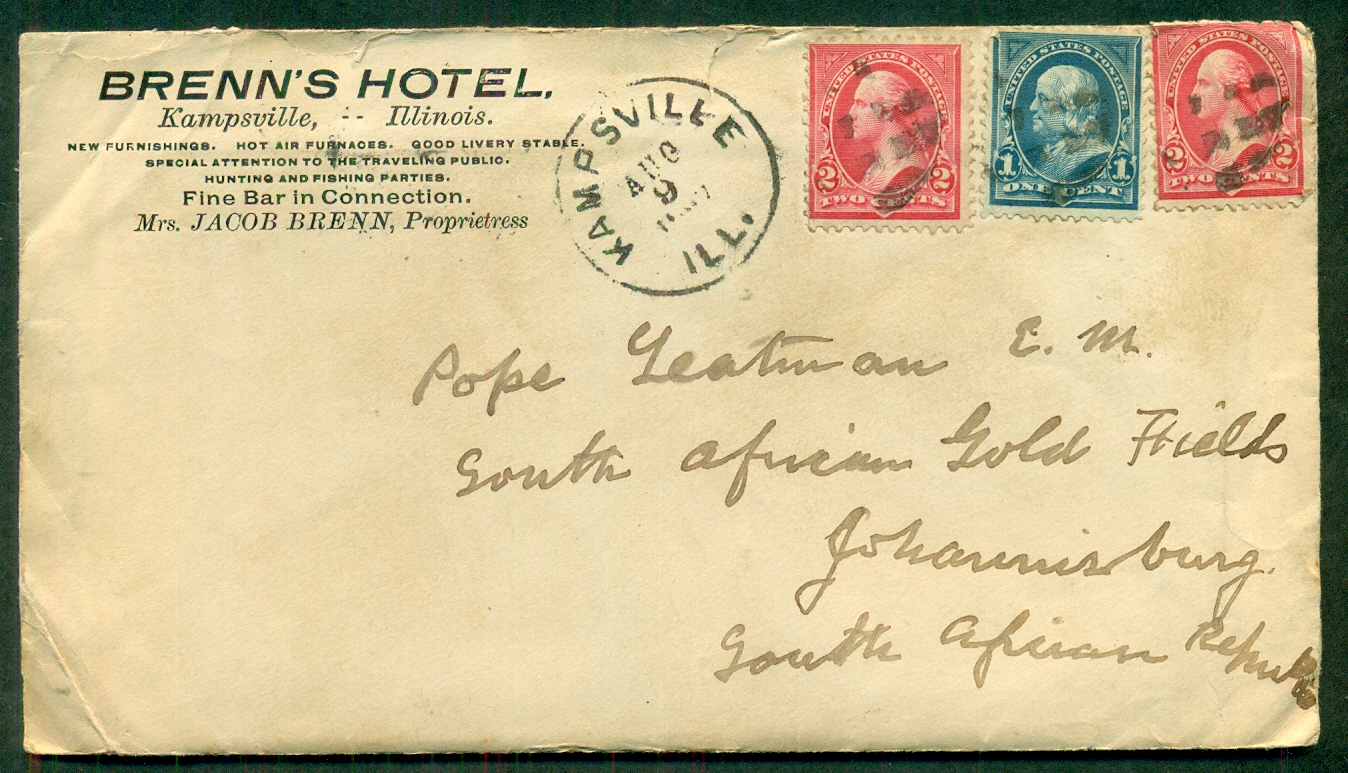 BRENN'S HOTEL,
Kampsville, -- Illinois.
NEW FURNISHINGS. HOT AIR FURNACES. GOOD LIVERY STABLE.
SPECIAL ATTENTION TO THE TRAVELING PUBLIC.
HUNTING AND FISHING PARTIES.
Fine Bar in Connection.
Mrs. JACOB BRENN, Proprietress
KAMPSVILLE
AUG
9
ILL.
UNITED STATES POSTAGE
2 2
TWO CENTS
UNITED STATES POSTAGE
1 1
ONE CENT
UNITED STATES POSTAGE
2 2
TWO CENTS
Pope Yeatman E. M.
South African Gold Fields
Johannisburg.
South African